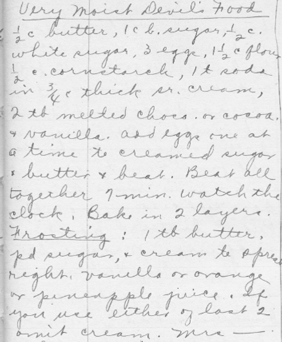 Very Moist Devil's Food
½ c butter, 1 c b. sugar, ½ c.
white sugar, 3 eggs, 1½ c flour
½ c. cornstarch, 1 t soda
in ¾ c thick sr. cream,
2 tb melted choco. or cocoa.
& vanilla. add eggs one at
a time to creamed sugar
& butter & beat. Beat all
together 7 min. Watch the
clock. Bake in 2 layers.
Frosting: 1 tb butter,
pd sugar, & cream to spread
right. Vanilla or orange
or pineapple juice. If
you use either of last 2
omit cream. Mrs —.